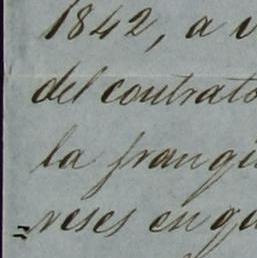 1842, a
del contrato
la franqui
=reses en qu